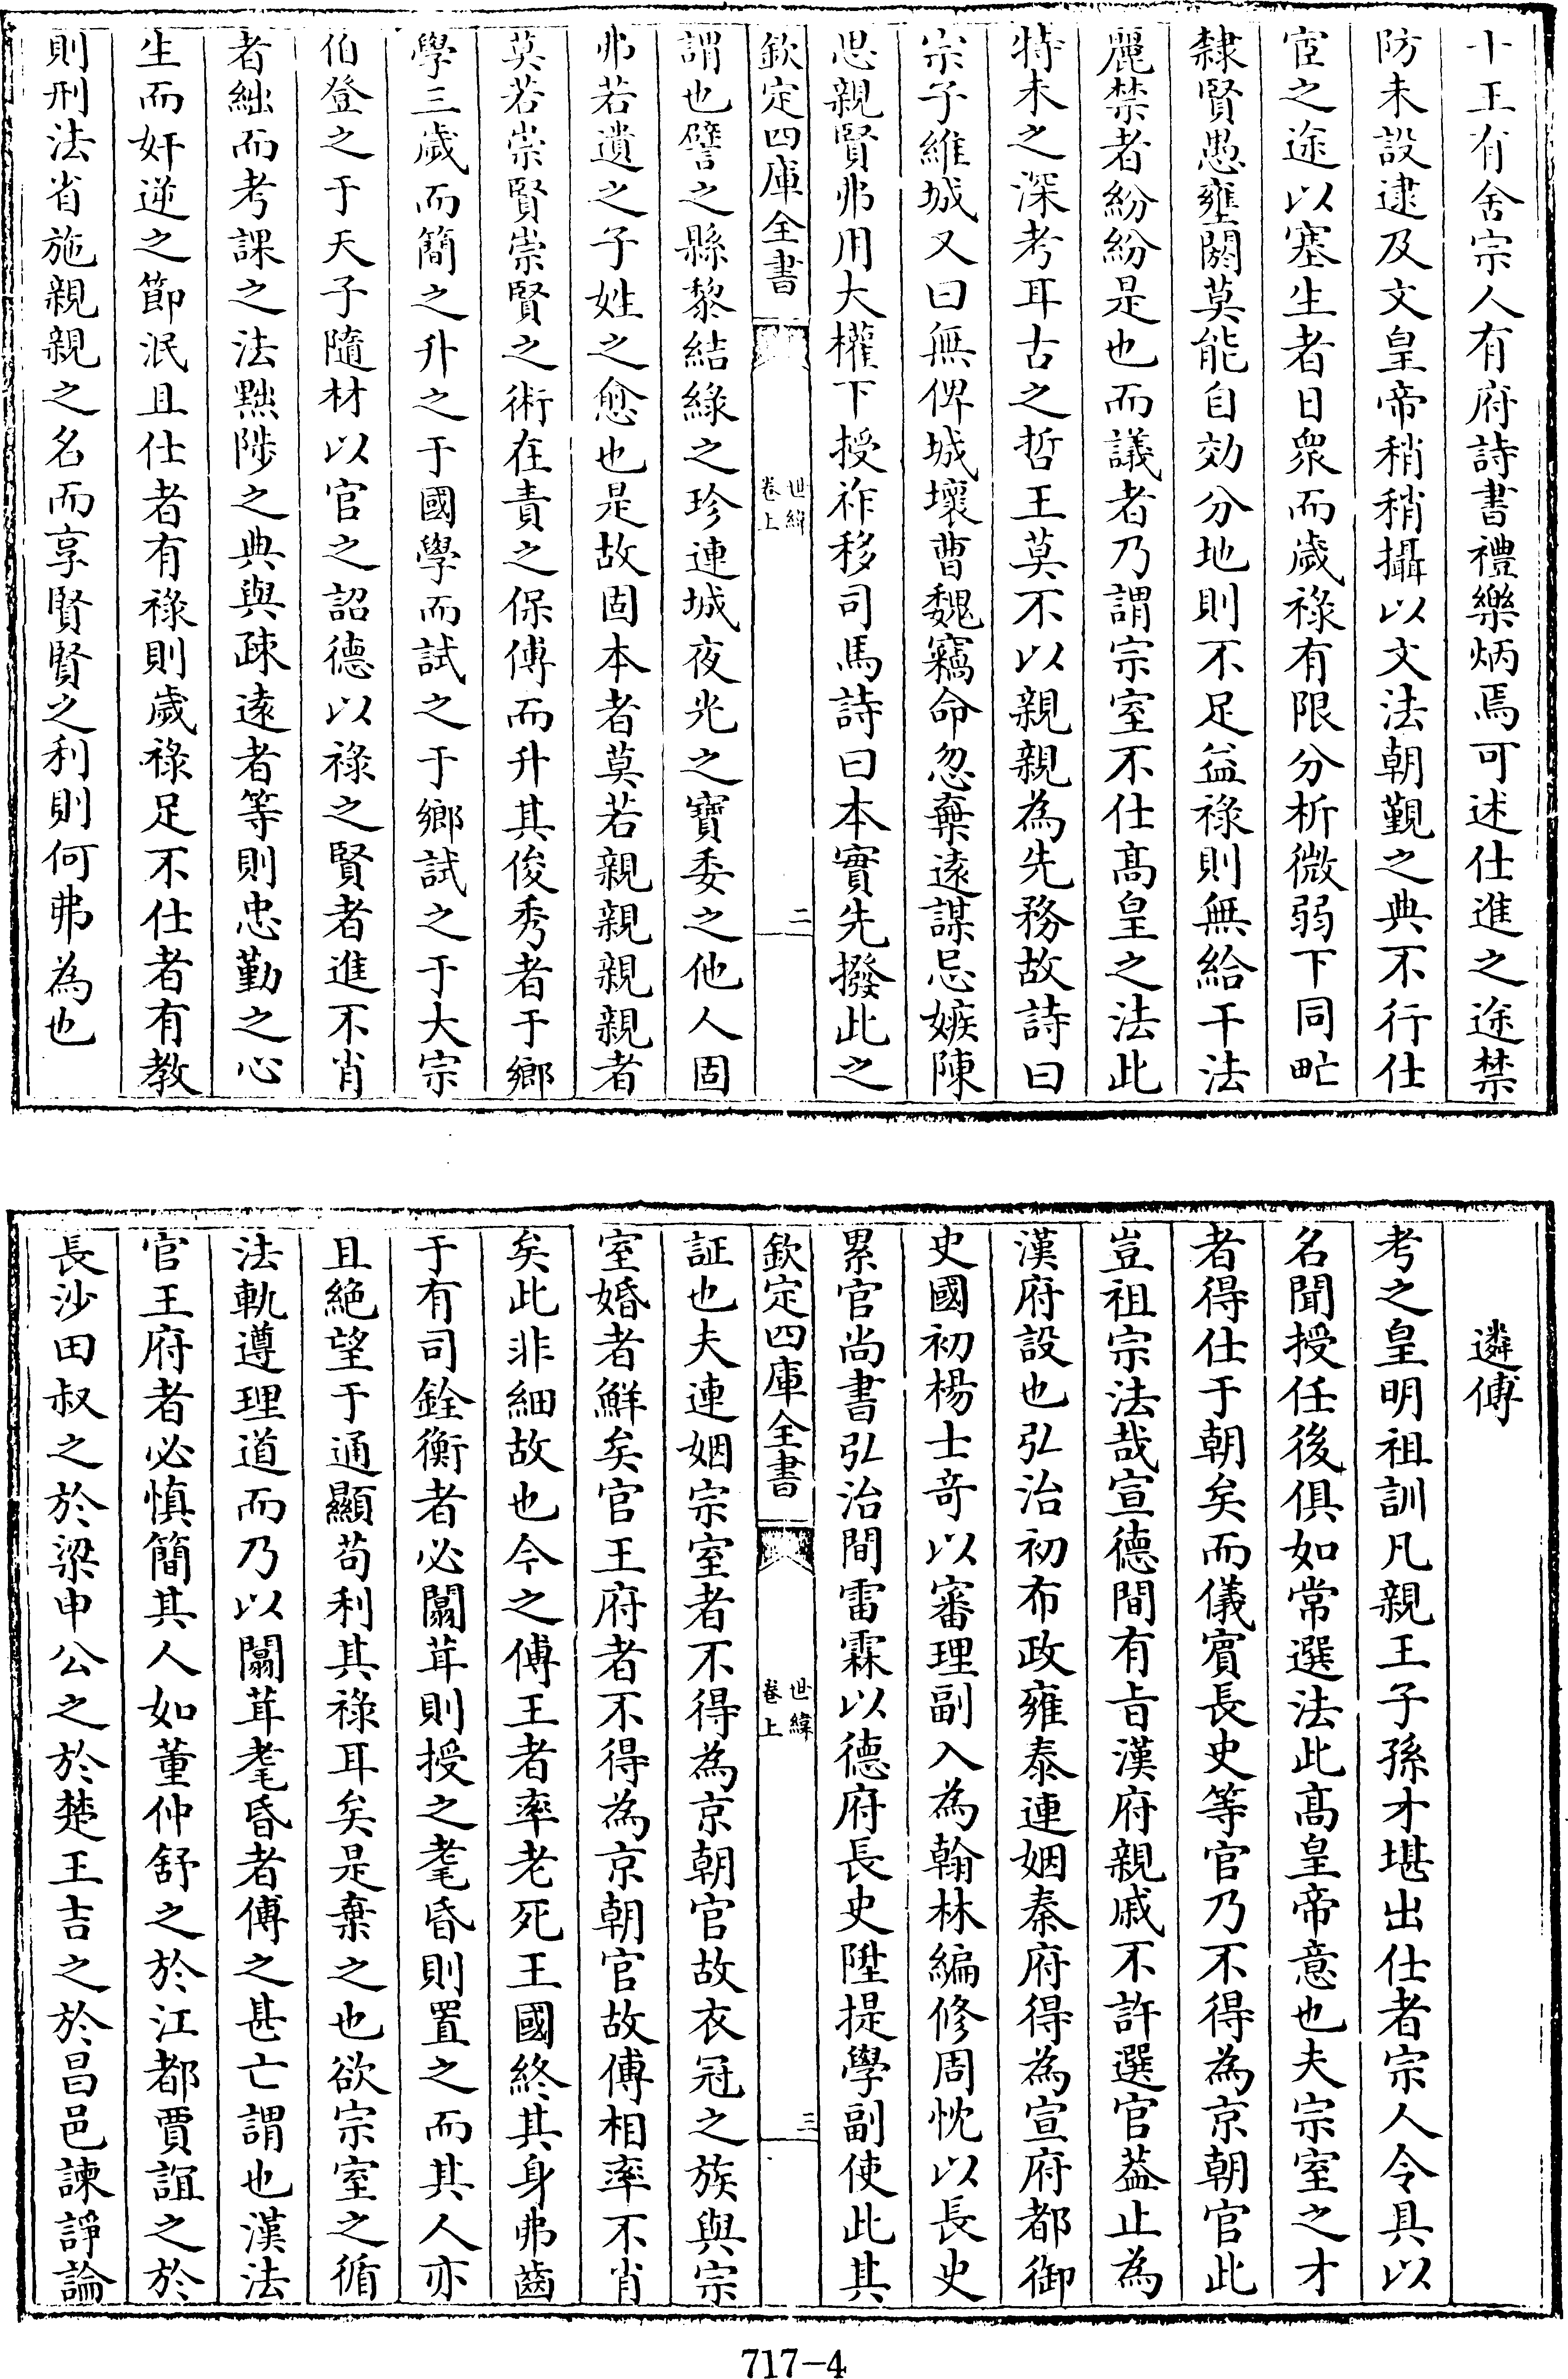 十王有舍宗人有府詩書禮樂炳焉可述仕進之途禁
防未設逮及文皇帝稍稍攝以文法朝覲之典不行仕
宦之途以塞生者日衆而歲祿有限分析微弱下同甿
隸賢愚壅閼莫能自効分地則不足益祿則無給干法
麗禁者紛紛是也而議者乃謂宗室不仕髙皇之法此
特未之深考耳古之哲王莫不以親親為先務故詩曰
宗子維城又曰無俾城壞曹魏竊命忽棄遠謀忌嫉陳
思親賢弗用大權下授祚移司馬詩曰本實先撥此之
欽定四庫全書
世緯
卷上
二
謂也譬之縣黎結綠之珍連城夜光之寶委之他人固
弗若遺之子姓之愈也是故固本者莫若親親親親者
莫若崇賢崇賢之術在責之保傅而升其俊秀者于鄉
學三歲而簡之升之于國學而試之于鄉試之于大宗
伯登之于天子隨材以官之詔德以祿之賢者進不肖
者絀而考課之法黜陟之典與疎遠者等則忠勤之心
生而奸逆之節泯且仕者有祿則歲祿足不仕者有教
則刑法省施親親之名而享賢賢之利則何弗為也
遴傅
考之皇明祖訓凡親王子孫才堪出仕者宗人令具以
名聞授任後俱如常選法此髙皇帝意也夫宗室之才
者得仕于朝矣而儀賓長史等官乃不得為京朝官此
豈祖宗法哉宣德間有旨漢府親戚不許選官葢止為
漢府設也弘治初布政雍泰連姻秦府得為宣府都御
史國初楊士竒以審理副入為翰林編修周忱以長史
累官尚書弘治間雷霖以德府長史陞提學副使此其
欽定四庫全書
世緯
卷上
三
証也夫連姻宗室者不得為京朝官故衣冠之族與宗
室婚者鮮矣官王府者不得為京朝官故傅相率不肖
矣此非細故也今之傅王者率老死王國終其身弗齒
于有司銓衡者必闒茸則授之耄昏則置之而其人亦
且絶望于通顯苟利其祿耳矣是棄之也欲宗室之循
法軌遵理道而乃以闒茸耄昏者傅之甚亡謂也漢法
官王府者必慎簡其人如董仲舒之於江都賈誼之於
長沙田叔之於梁申公之於楚王吉之於昌邑諫諍論
717-4